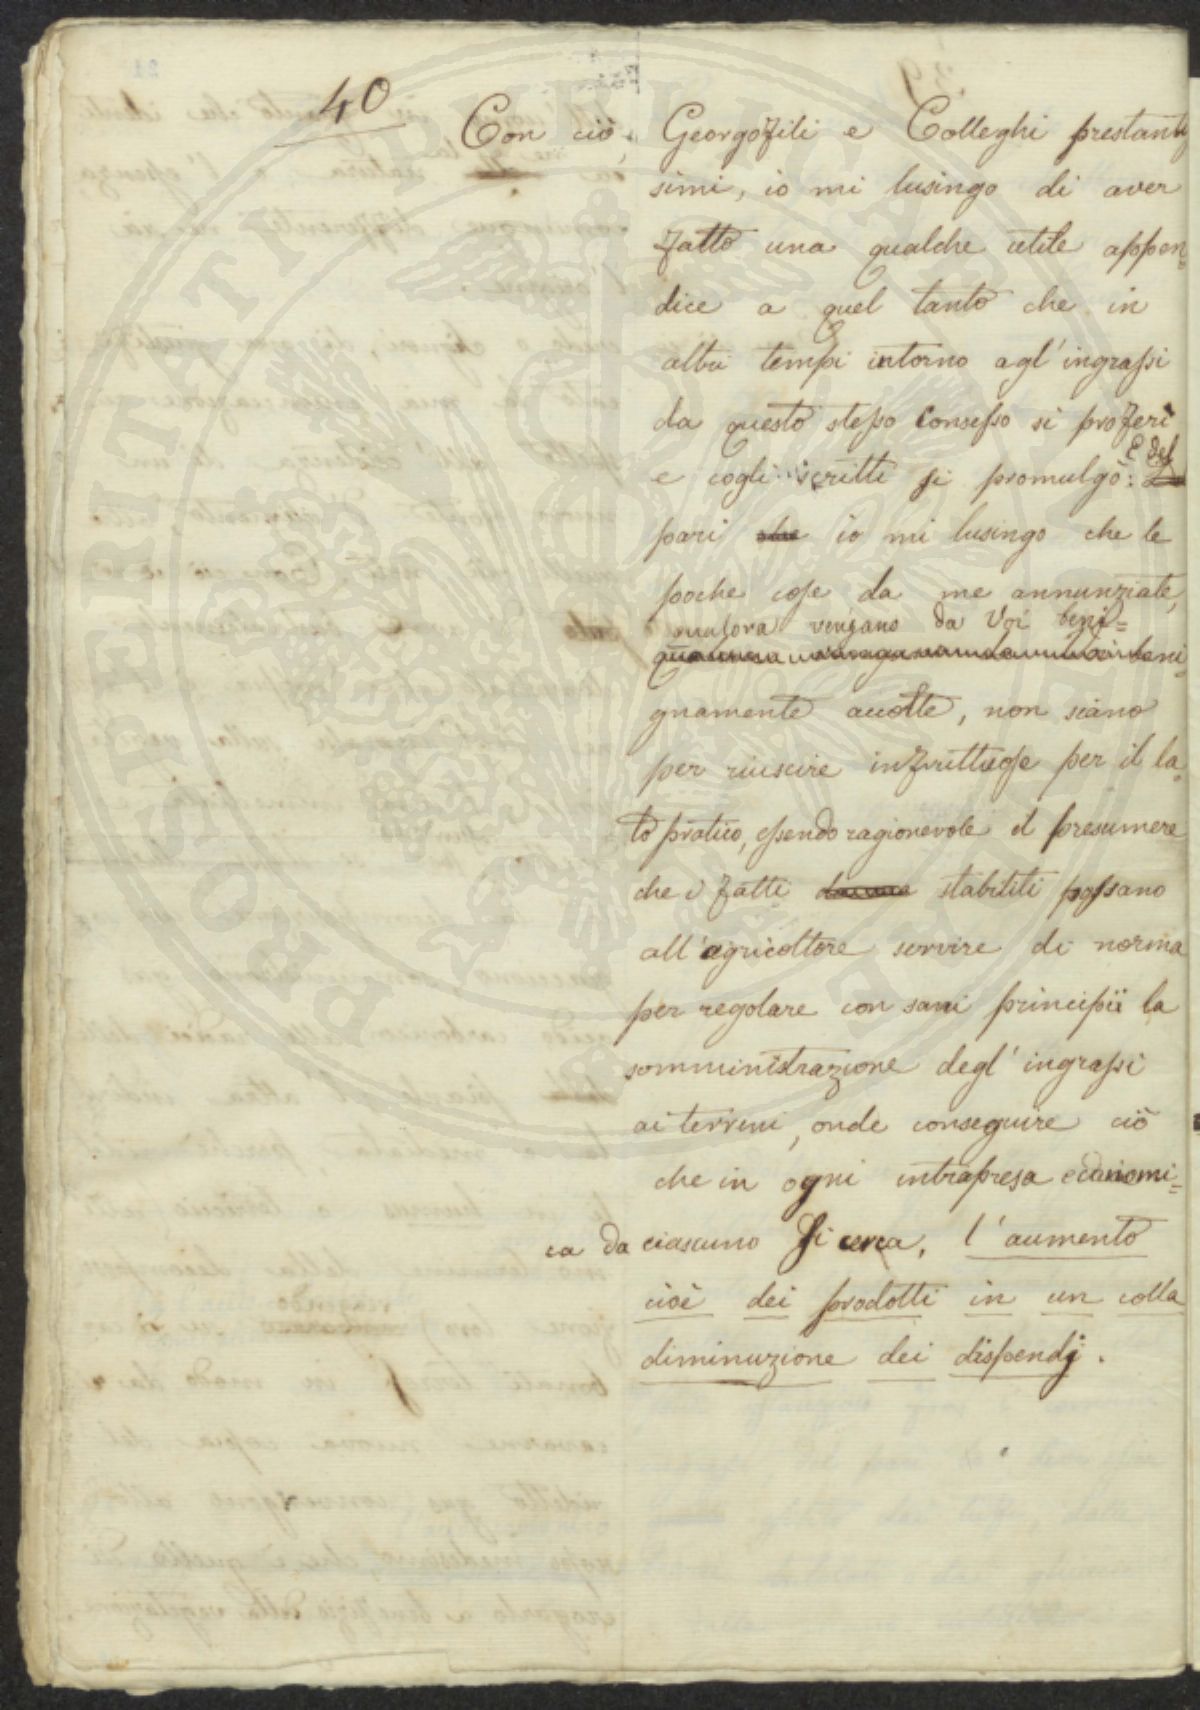 40
Con ciò, Georgofili e Colleghi prestantis
simi, io mi lusingo di aver
fatto una qualche utile appen=
dice a quel tanto che in
altri tempi intorno agl' ingrassi
da questo stesso Consesso si proferì
e cogli scritti si promulgò: E del
pari che io mi lusingo che le
poche cose da me annunziate,
qualora vengano da Voi beni=
gnamente accolte, non siano
per riuscire infruttuose per il la=
to pratico, essendo ragionevole il presumere
che i fatti stabiliti possano
all' agricoltore servire di norma
per regolare con sani principii la
somministrazione degl' ingrassi
ai terreni, onde conseguire ciò
che in ogni intrapresa economi=
ca da ciascuno si cerca, l' aumento
cioè dei prodotti in un colla
diminuzione dei dispendj.
PROSPERITATI PUBLICAE